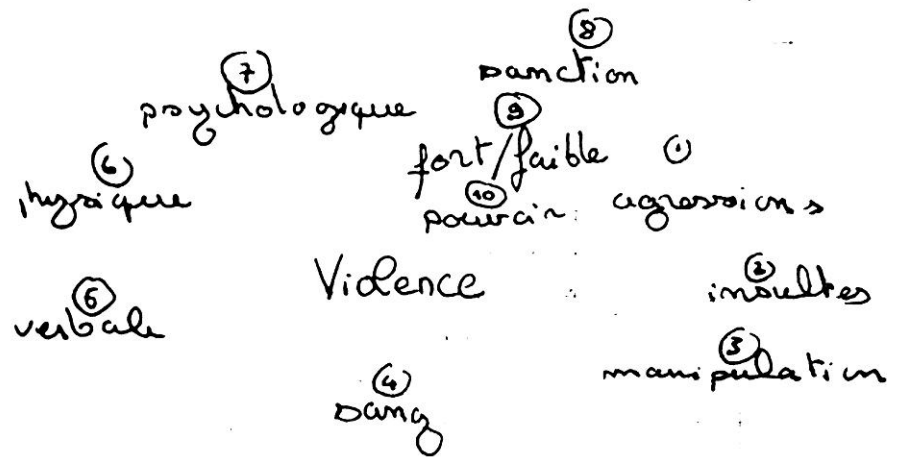 8
sanction
7
psychologique
9
fort/faible
1
6
physique
10
pouvoir
agressions
Violence
2
insultes
5
verbale
3
manipulation
4
sang